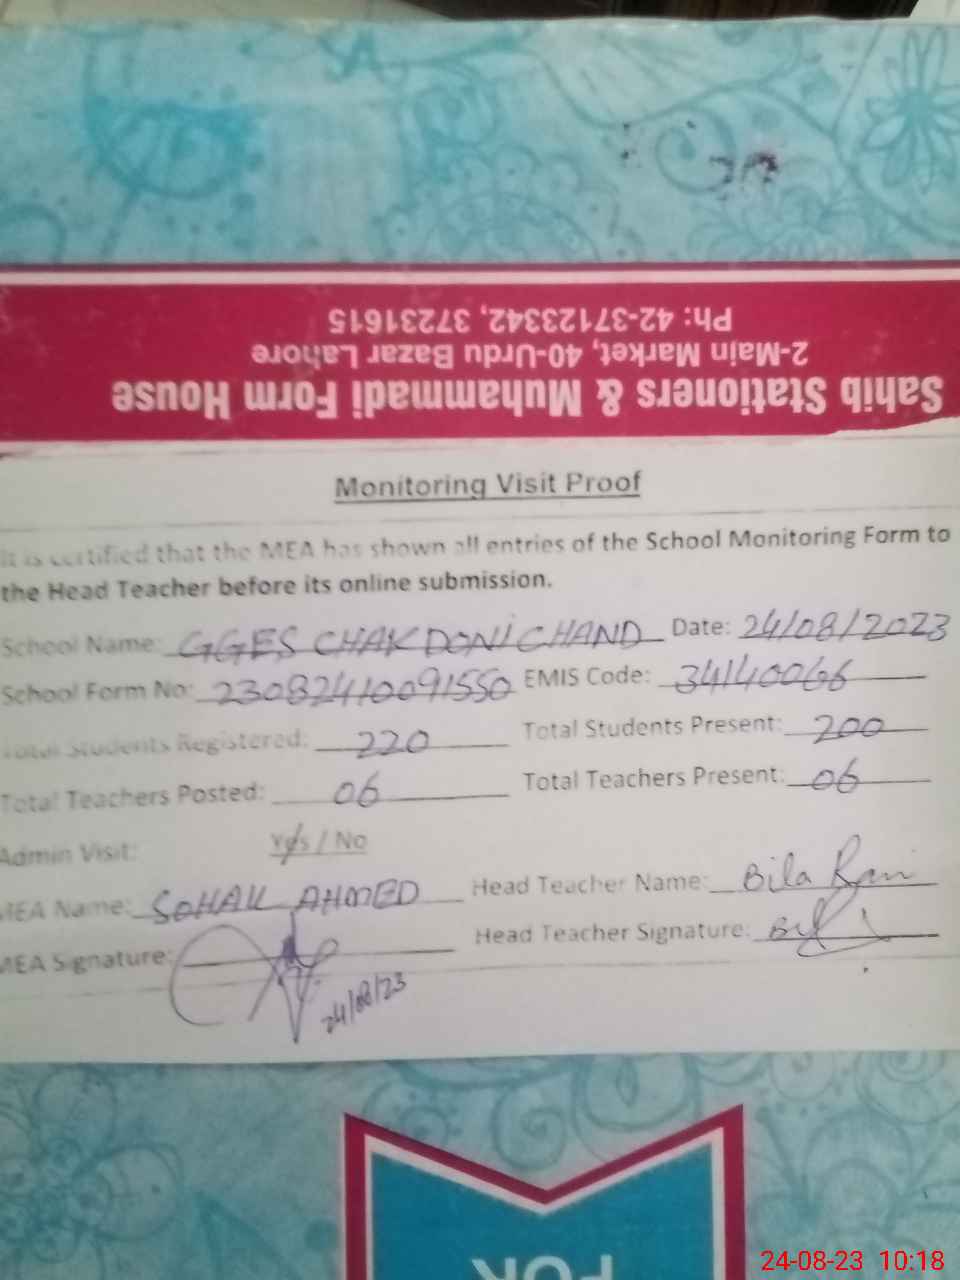 Sahib Stationers & Muhammadi Form House
2-Main Market, 40-Urdu Bazar Lahore
Ph: 42-37123342, 37231615
Monitoring Visit Proof
It is certified that the MEA has shown all entries of the School Monitoring Form to
the Head Teacher before its online submission.
School Name: GGES CHAK DONI CHAND Date: 24/08/2023
School Form No: 23082410091550 EMIS Code: 34140066
Total Students Registered: 220 Total Students Present: 200
Total Teachers Posted: 06 Total Teachers Present: 06
Admin Visit: Yes / No
MEA Name: SOHAIL AHMED Head Teacher Name: Bila Rani
MEA Signature: Head Teacher Signature:
24/08/23
FOR
24-08-23 10:18